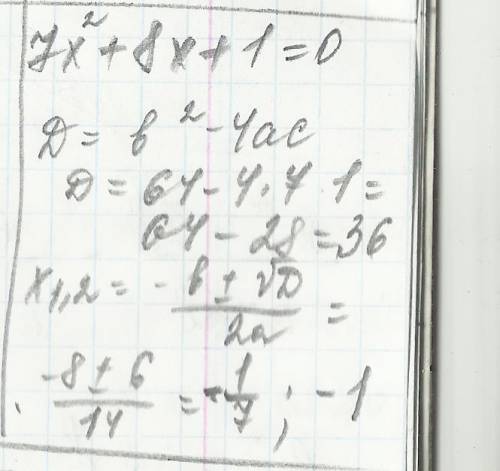 7x² + 8x + 1 = 0
D = b² - 4ac
D = 64 - 4·7 1 =
64 - 28 = 36
x1,2 = - b ± √D / 2a =
-8 ± 6 / 14 = - 1/7 ; -1